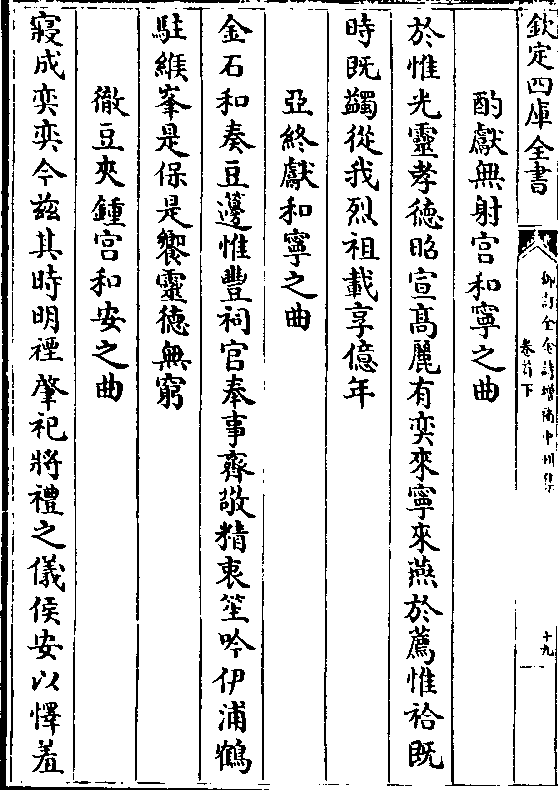 欽定四庫全書
御訂全金詩增補中州集
卷首下
十九
酌獻無射宮和寧之曲
於惟光靈孝德昭宣高麗有奕來寧來燕於薦惟祫既
時既蠲從我烈祖載享億年
亞終獻和寧之曲
金石和奏豆籩惟豐祠官奉事齊敬精衷笙吟伊浦鶴
駐緱峯是保是饗靈德無窮
徹豆夾鍾宮和安之曲
寢成奕奕今兹其時明禋肇祀將禮之儀侯安以懌羞